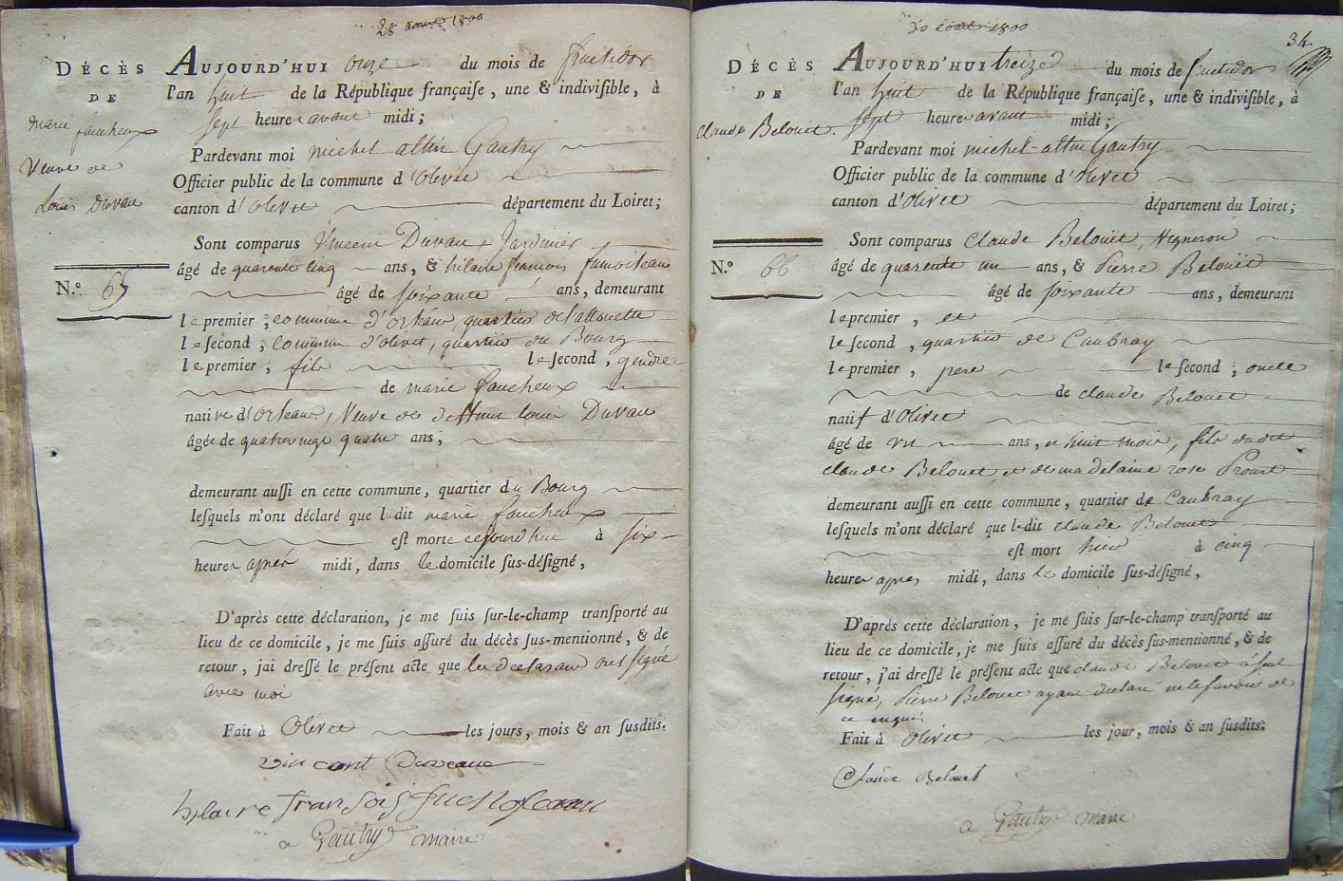 28 aoust 1800
DÉCÈS
DE
marie faucheux
Veuve de
Louis Duvau
N.º 65
AUJOURD'HUI onze du mois de fructidor
l'an huit de la République françaiſe, une & indiviſible, à
ſept heures avant midi;
Pardevant moi michel altin Gautry
Officier public de la commune d'Olivet
canton d'Olivet département du Loiret;
Sont comparus Vincent Duvau, Jardinier
âgé de quarente cinq ans, & hilaire françois
âgé de ſoixante ans, demeurant
le premier, commune d'orléans, quartier de l'allouette
le ſecond, commune d'olivet, quartier du Bourg
le premier, fils le ſecond, gendre
de marie faucheux
native d'orleans, Veuve de deffunt louis Duvau
âgée de quatrevingt quatre ans,
demeurant auſſi en cette commune, quartier du Bourg
leſquels m'ont déclaré que ladit marie faucheux
eſt morte cejourdhui à ſix
heures après midi, dans le domicile ſus-déſigné,
D'après cette déclaration, je me ſuis ſur-le-champ tranſporté au
lieu de ce domicile, je me ſuis aſſuré du décès ſus-mentionné, & de
retour, j'ai dreſſé le préſent acte que les declarans ont ſigné
avec moi
Fait à Olivet les jours, mois & an ſuſdits.
vincent Duveau
hilaire fransois
a Gautry maire
30 aoust 1800
34
DÉCÈS
DE
claude Belouet.
N.º 66
AUJOURD'HUI treize du mois de fructidor
l'an huit de la République françaiſe, une & indiviſible, à
ſept heures avant midi;
Pardevant moi michel altin Gautry
Officier public de la commune d'Olivet
canton d'Olivet département du Loiret;
Sont comparus Claude Belouet, vigneron
âgé de quarente un ans, & Pierre Belouet
âgé de ſoixante ans, demeurant
le premier, et
le ſecond, quartier de Caubray
le premier, pere le ſecond, oncle
de claude Belouet
natif d'Olivet
âgé de un ans, et huit mois, fils dudit
claude Belouet, et de madelaine rose Proust
demeurant auſſi en cette commune, quartier de Caubray
leſquels m'ont déclaré que ledit claude Belouet
eſt mort hier à cinq
heures après midi, dans le domicile ſus-déſigné,
D'après cette déclaration, je me ſuis ſur-le-champ tranſporté au
lieu de ce domicile, je me ſuis aſſuré du décès ſus-mentionné, & de
retour, j'ai dreſſé le préſent acte que claude Belouet a ſeul
ſigné, Pierre Belouet ayant declaré ne le ſavoir de
ce enquis
Fait à Olivet les jour, mois & an ſuſdits.
Claude Belouet
a Gautry maire